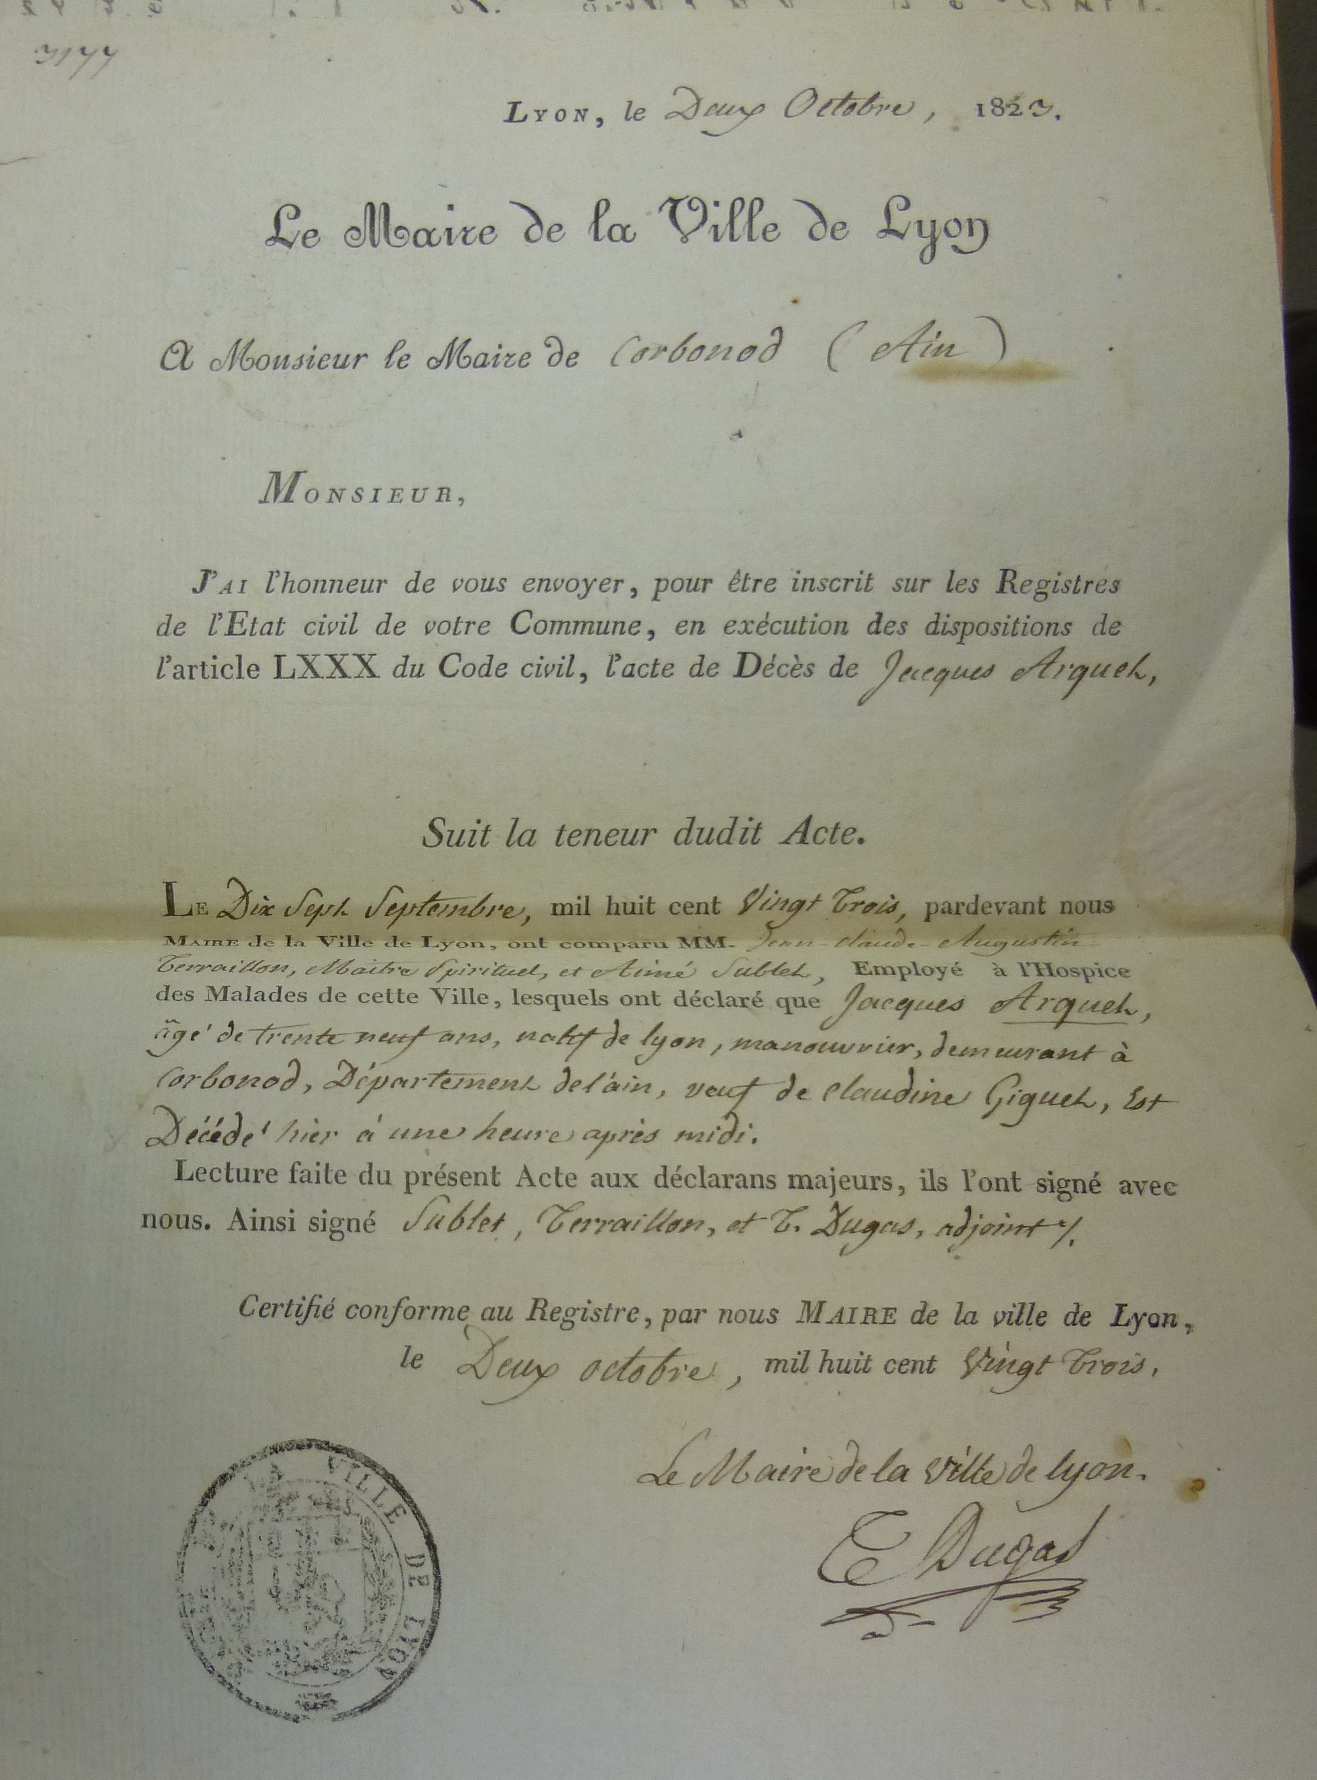 3177
LYON, le Deux Octobre, 1823.
Le Maire de la Ville de Lyon
A Monsieur le Maire de Corbonod (Ain)
MONSIEUR,
J'AI l'honneur de vous envoyer, pour être inscrit sur les Registres
de l'Etat civil de votre Commune, en exécution des dispositions de
l'article LXXX du Code civil, l'acte de Décès de Jacques Arquet,
Suit la teneur dudit Acte.
LE Dix Sept Septembre, mil huit cent Vingt Trois, pardevant nous
MAIRE de la Ville de Lyon, ont comparu MM. Jean-Claude-Augustin
Terraillon, Maitre Spirituel, et Aimé Sublet, Employé à l'Hospice
des Malades de cette Ville, lesquels ont déclaré que Jacques Arquet,
âgé de trente neuf ans, natif de lyon, manouvrier, demeurant à
Corbonod, Département de l'ain, veuf de Claudine Giguet, Est
Décédé hier à une heure après midi.
Lecture faite du présent Acte aux déclarans majeurs, ils l'ont signé avec
nous. Ainsi signé Sublet, Terraillon, et T. Dugas, adjoint
Certifié conforme au Registre, par nous MAIRE de la ville de Lyon,
le Deux octobre, mil huit cent Vingt Trois.
Le Maire de la Ville de lyon.
T Dugas
VILLE DE LYON